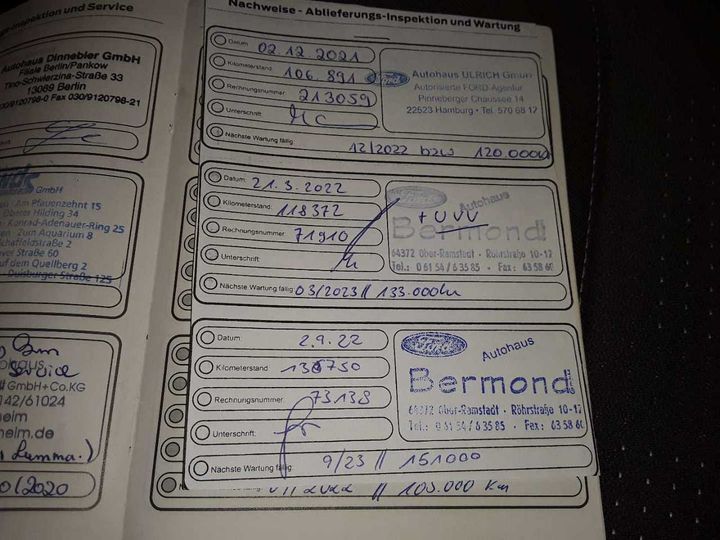 Inspektion und Service
Autohaus Dinnebier GmbH
Filiale Berlin/Pankow
Tino-Schwierzina-Straße 33
13089 Berlin
030/9120798-0 Fax 030/9120798-21
GmbH
Am Pfauenzehnt 15
Oberer Hilding 34
Konrad-Adenauer-Ring 25
Zum Aquarium 8
Schaffeldstraße 2
Straße 60
Auf dem Quellberg 2
Duisburger Straße 125
Service
GmbH+Co.KG
142/61024
heim
heim.de
0/2020
Nachweise - Ablieferungs-Inspektion und Wartung
Datum: 02.12.2021
Kilometerstand: 106.891
Rechnungsnummer: 213059
Unterschrift:
Nächste Wartung fällig: 12/2022 bzw 120.000
Ford
Autohaus ULRICH GmbH
Autorisierte FORD-Agentur
Pinneberger Chaussee 14
22523 Hamburg • Tel. 570 68 17
Datum: 21.3.2022
Kilometerstand: 118372
Rechnungsnummer: 71910
Unterschrift:
Nächste Wartung fällig 03/2023 // 133.000km
Ford
Autohaus
+ UVV
Bermond
64372 Ober-Ramstadt · Röhrstraße 10-12
Tel.: 0 61 54 / 6 35 85 · Fax: 6 35 86
Datum: 2.9.22
Kilometerstand
Rechnungsnummer: 73138
Unterschrift:
Nächste Wartung fällig: 9/23 // 151000
Ford
Autohaus
Bermond
64372 Ober-Ramstadt · Röhrstraße 10-12
Tel.: 0 61 54 / 6 35 85 · Fax: 6 35 86
// 105.000 Km